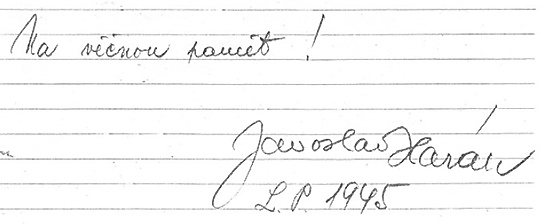 Na věčnou pamět!
Jaroslav Harák
L.P. 1945